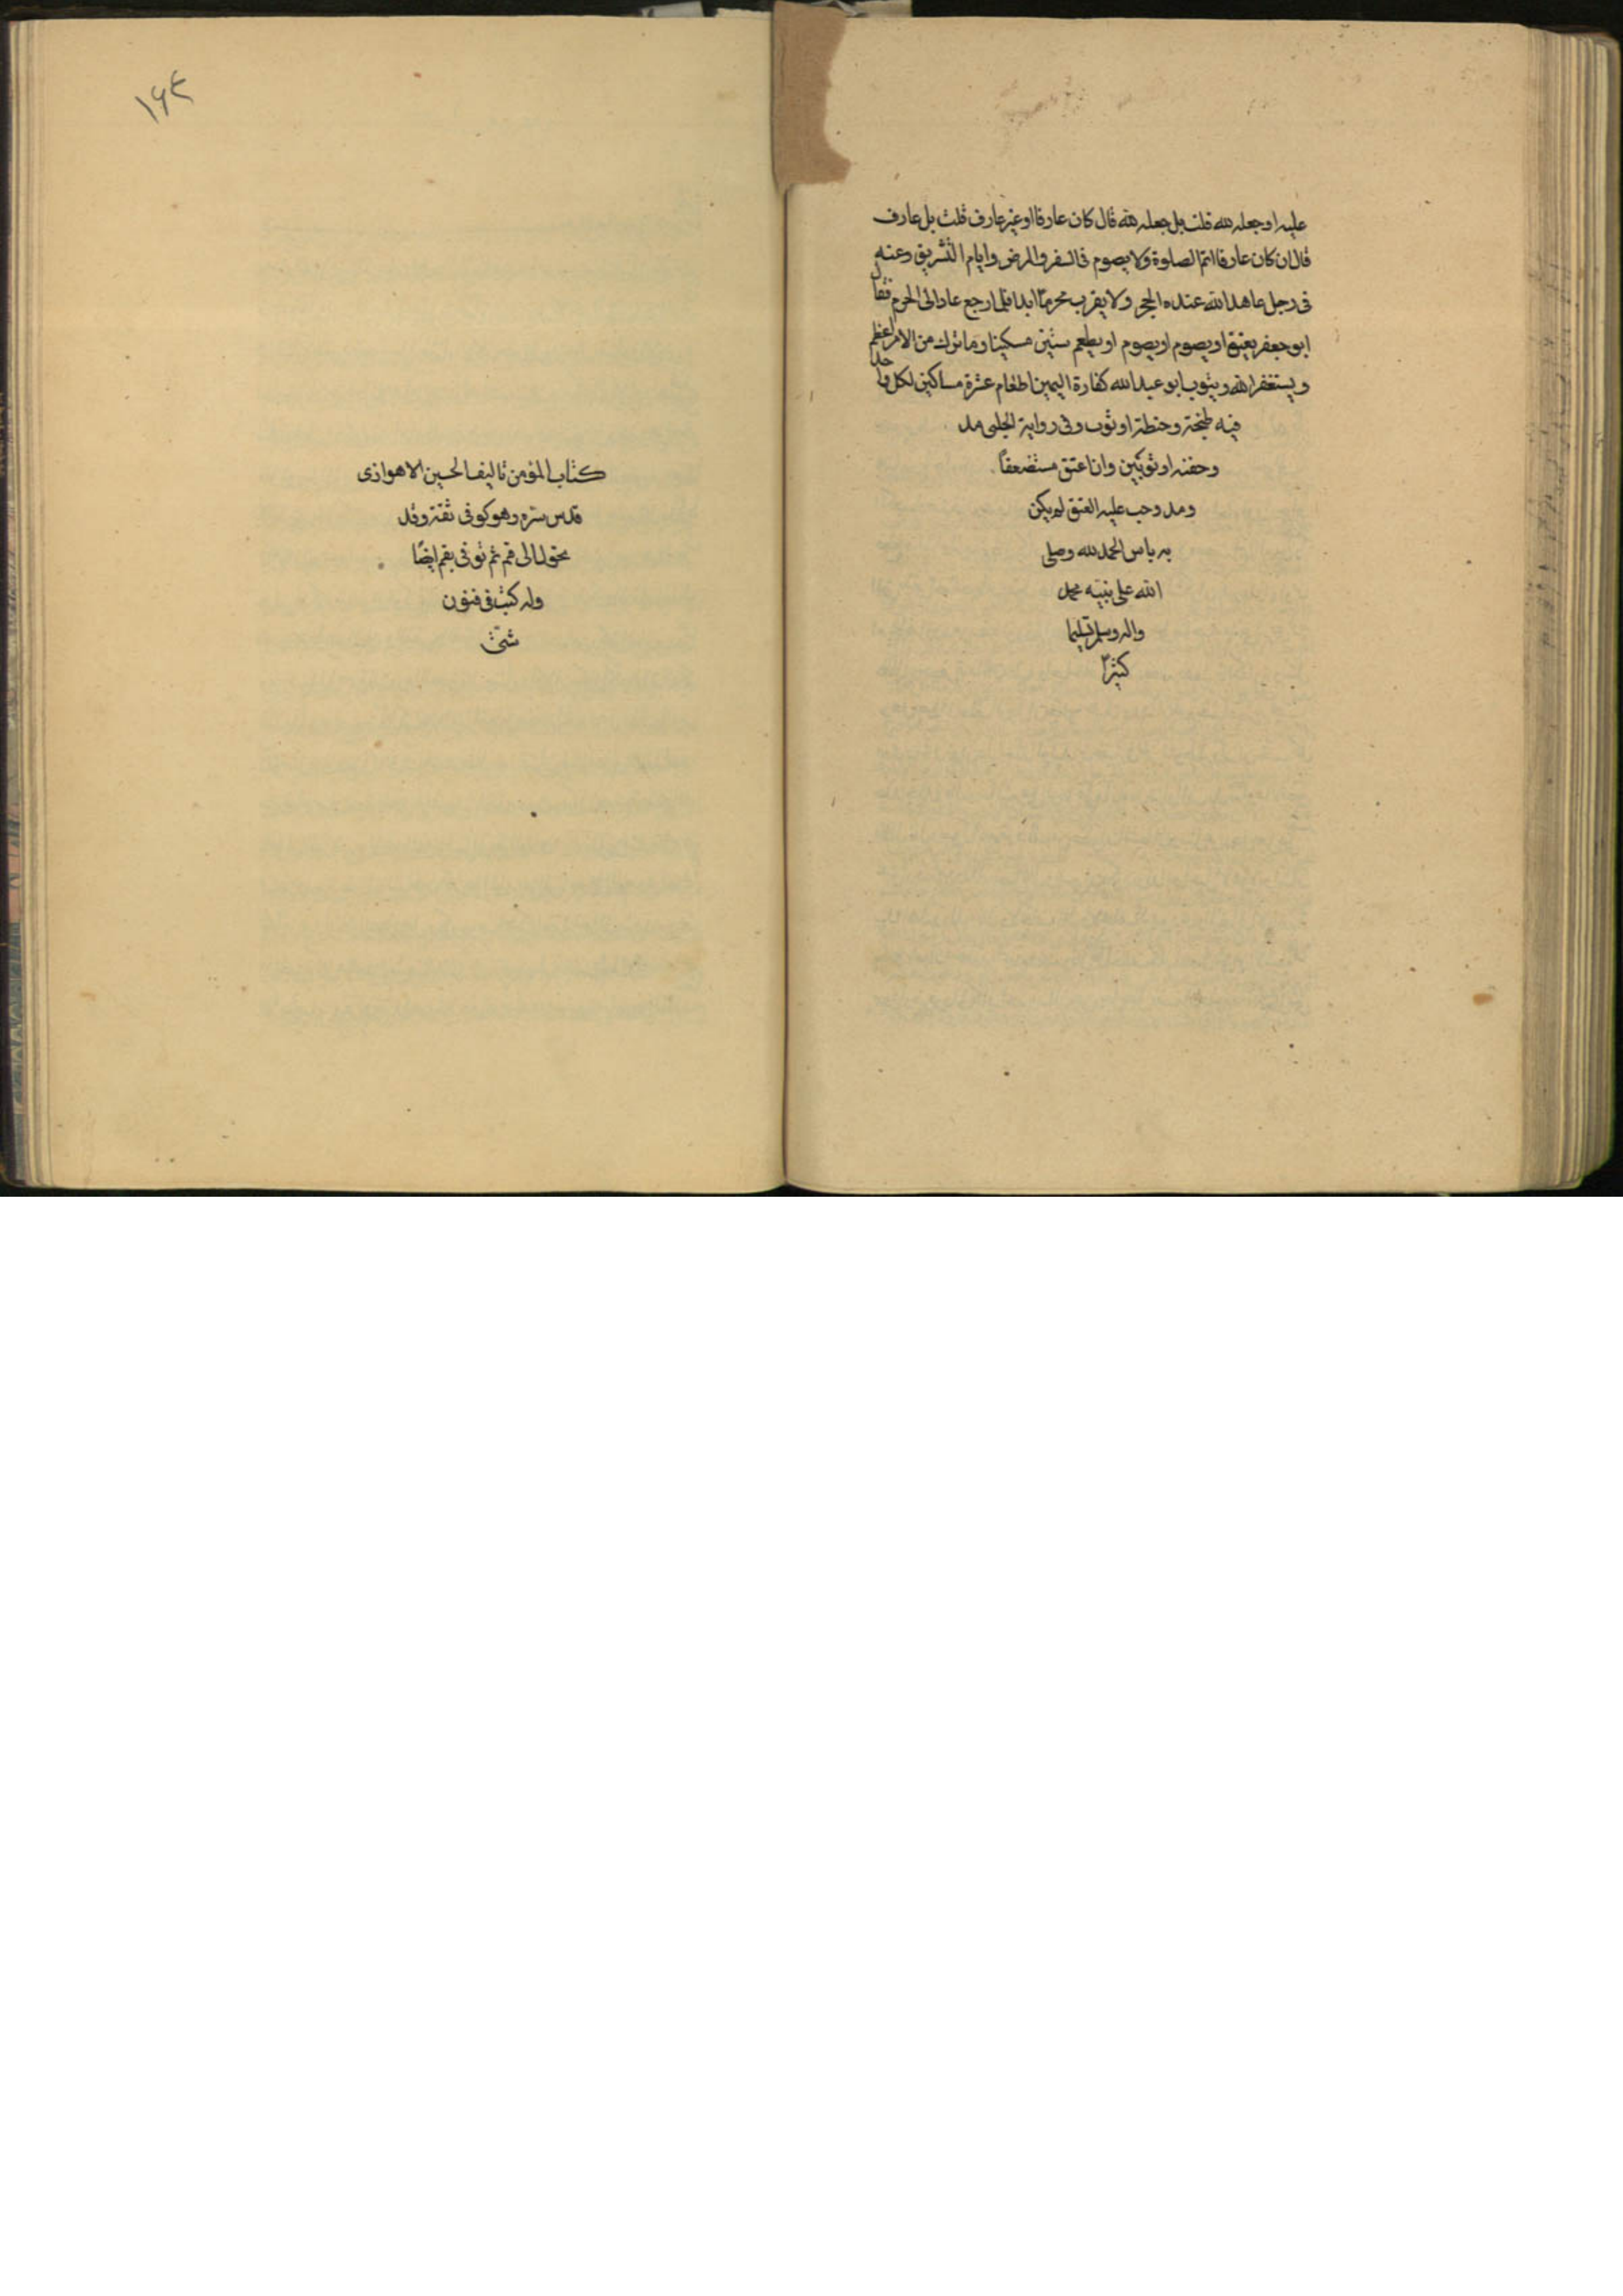 عليه او جعله لله قلت بل جعله لله قال كان عارفا او غير عارف قلت بل عارف
قال ان كان عارفا اتم الصلوة ولا يصوم فى السفر والمرض وايام التشريق وعنه
فى رجل عاهد الله عند الحجر ولا يقرب محرما ابدا فلما رجع عاد الى المحرم فقال
ابو جعفر يعتق او يصوم او يصوم او يطعم ستين مسكينا وما ترك من الامر اعظم
ويستغفر الله ويتوب ابو عبد الله كفارة اليمين اطعام عشرة مساكين لكل واحد
فيه طحنة وحنطة او ثوب وفى رواية الحلبى مد
وحفنه او ثوبين وان اعتق مستضعفا
ومد وجب عليه العتق لم يكن
به باس الحمد لله وصلى
الله على نبيه محمد
واله وسلم تسليما
كثيرا
١٩٤
كتاب المؤمن تاليف الحسين الاهوازى
قدس سره وهو كوفى ثقة وقد
تحول الى قم ثم توفى بقم ايضا
وله كتب فى فنون
شتى